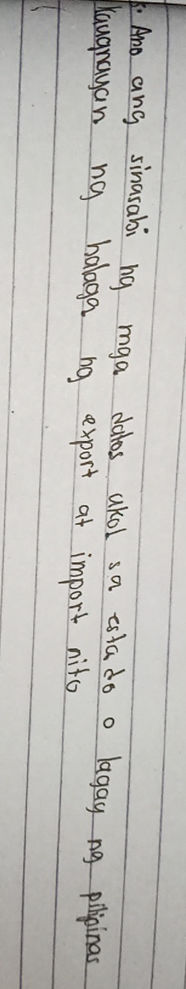 : Ano ang sinasabi ng mga datos ukol sa estado o lagay ng pilipinas
kaugnayan ng halaga ng export at import nito